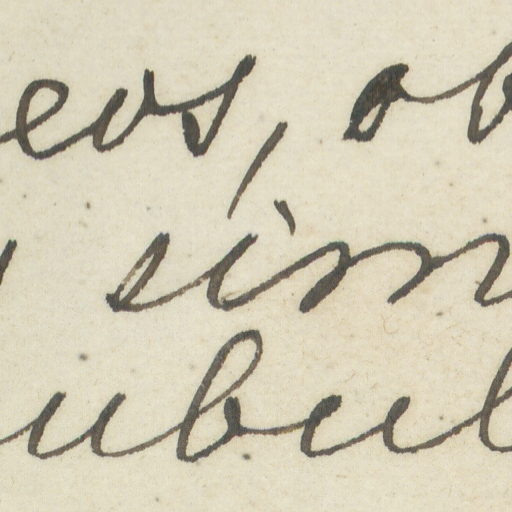 eos, ob
sim
ubul